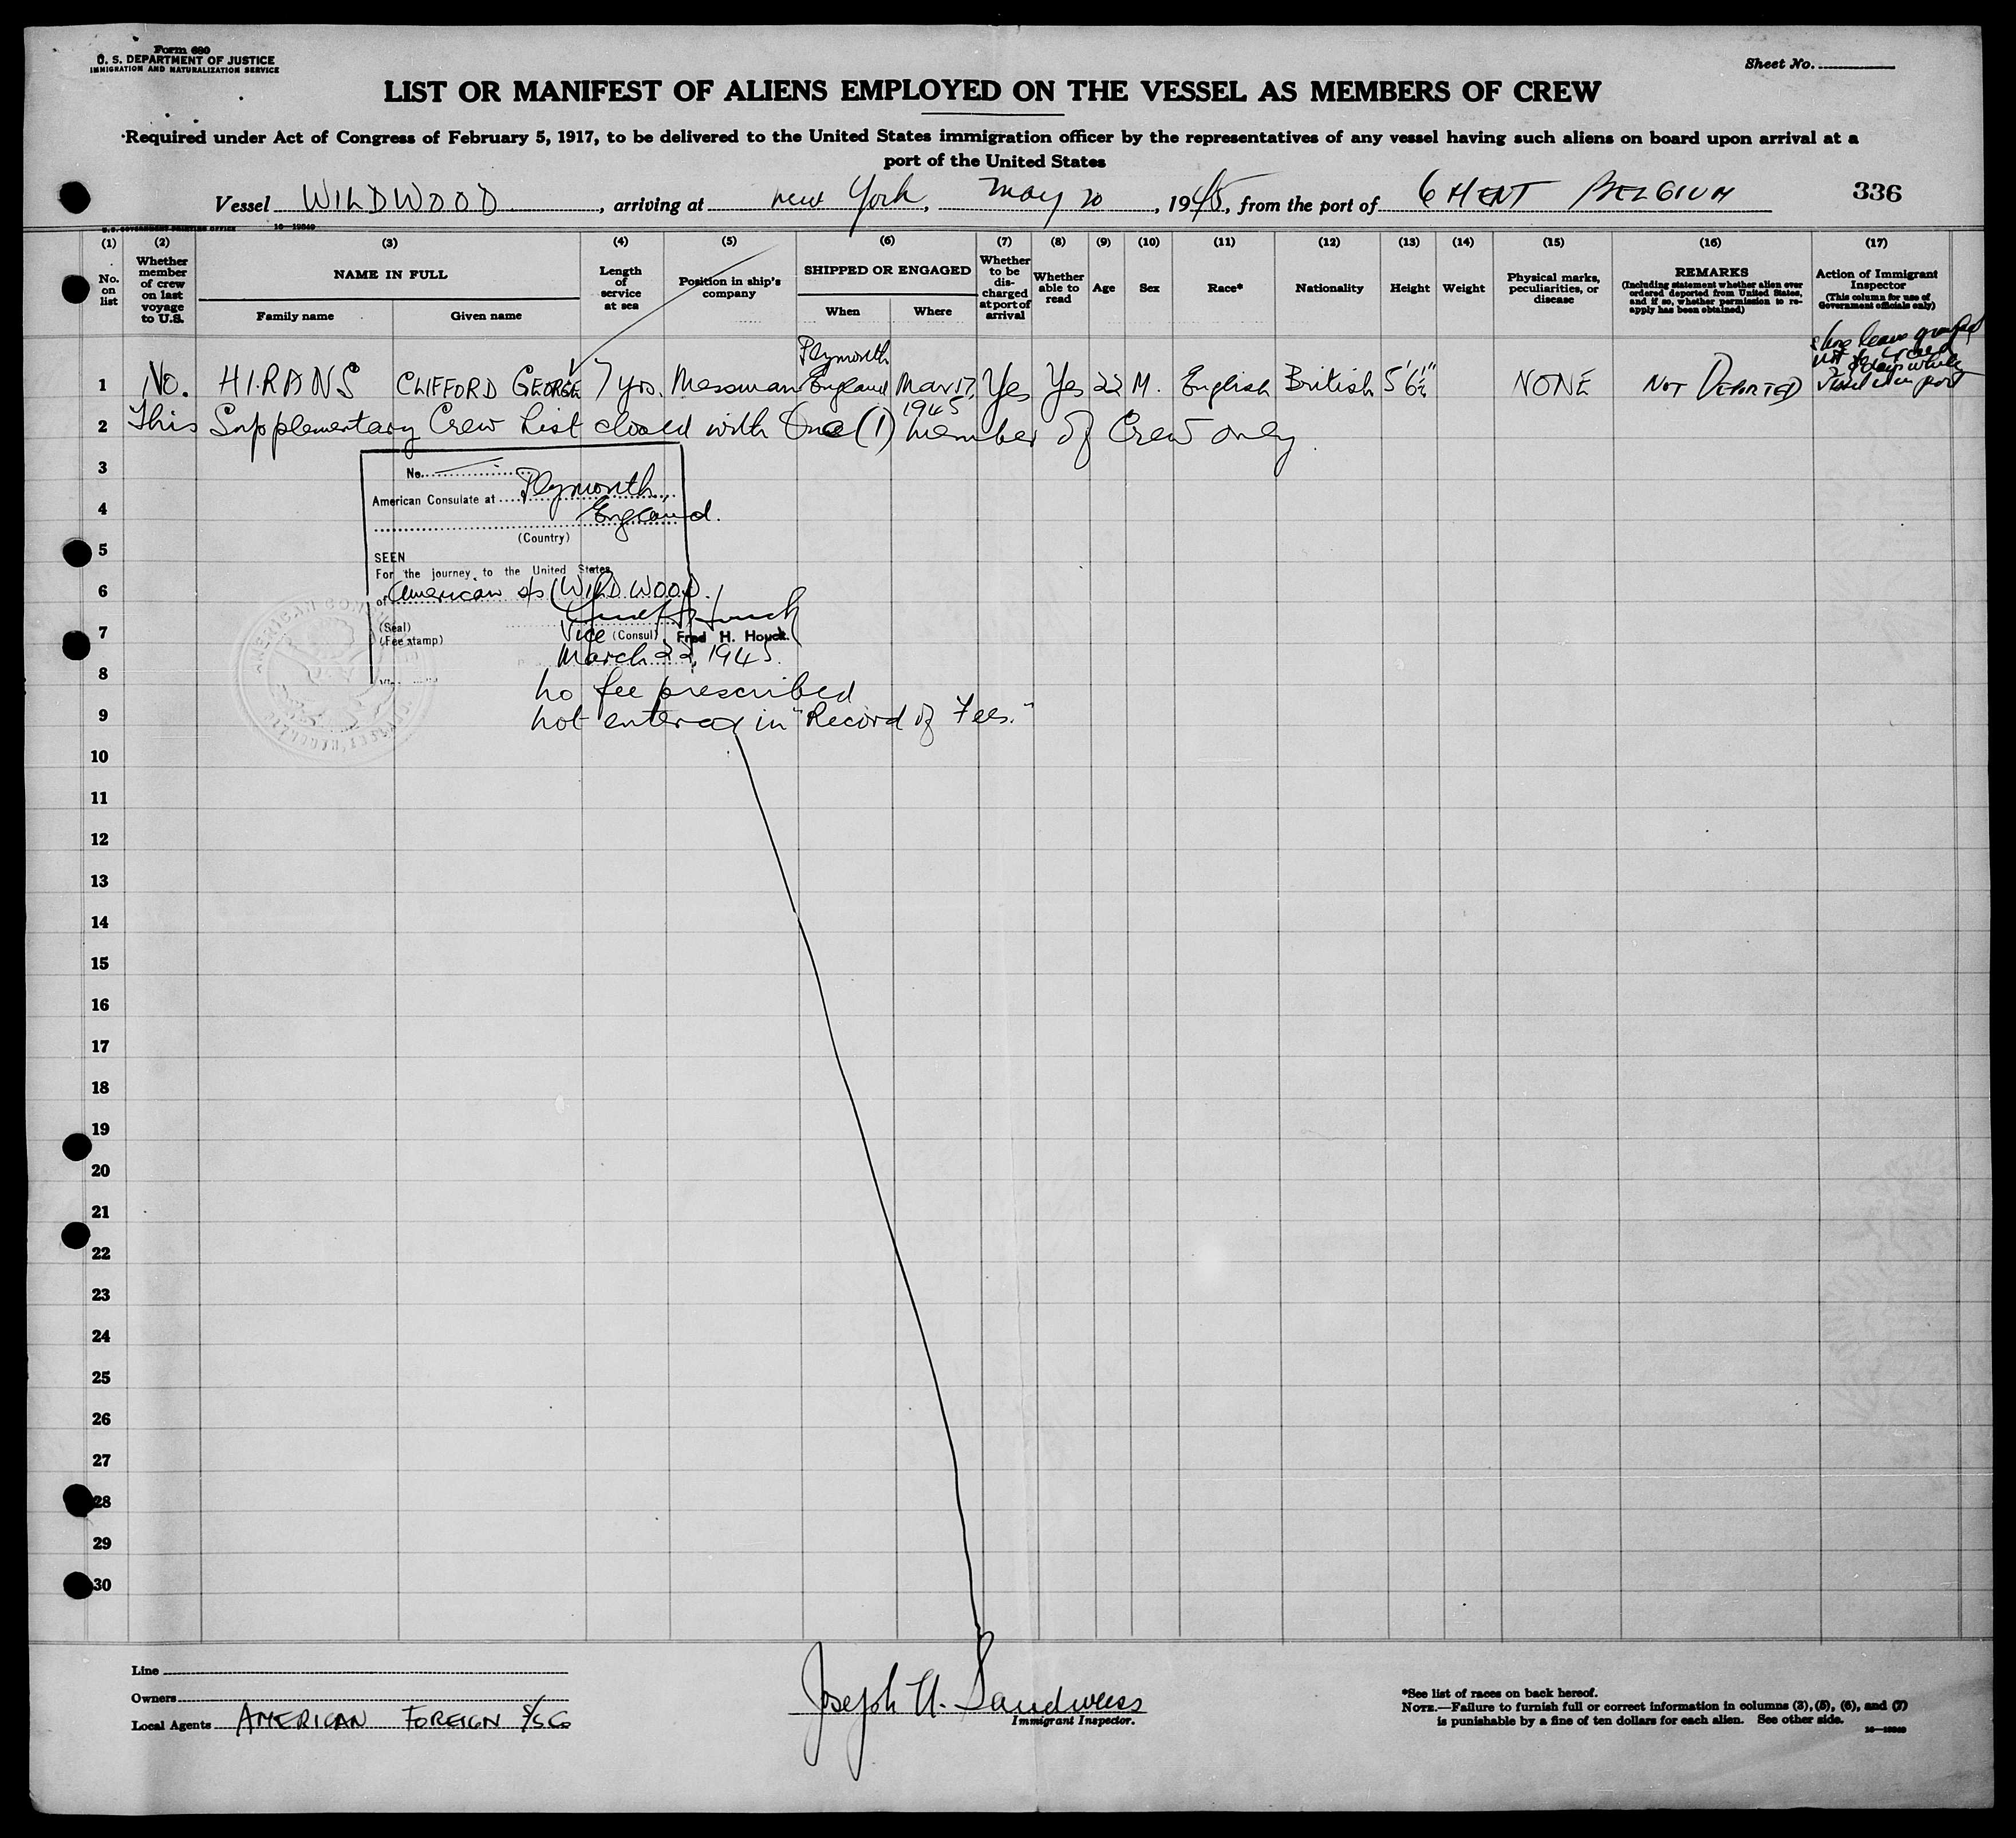 Form 680
U. S. DEPARTMENT OF JUSTICE
IMMIGRATION AND NATURALIZATION SERVICE
Sheet No.
LIST OR MANIFEST OF ALIENS EMPLOYED ON THE VESSEL AS MEMBERS OF CREW
Required under Act of Congress of February 5, 1917, to be delivered to the United States immigration officer by the representatives of any vessel having such aliens on board upon arrival at a
port of the United States
Vessel WILDWOOD, arriving at new York, May 20, 1945, from the port of GHENT BELGIUM 336
U. S. GOVERNMENT PRINTING OFFICE 16—19849
(1) (2) (3) (4) (5) (6) (7) (8) (9) (10) (11) (12) (13) (14) (15) (16) (17)
No. on list
Whether member of crew on last voyage to U.S.
NAME IN FULL
Family name
Given name
Length of service at sea
Position in ship's company
SHIPPED OR ENGAGED
When
Where
Whether to be discharged at port of arrival
Whether able to read
Age
Sex
Race*
Nationality
Height
Weight
Physical marks, peculiarities, or disease
REMARKS
(Including statement whether alien ever ordered deported from United States, and if so, whether permission to reapply has been obtained)
Action of Immigrant Inspector
(This column for use of Government officials only)
1 No. HIRANS CLIFFORD GEORGE 7 yrs. Messman Plymouth England Mar 17, 1945 Yes Yes 22 M. English British 5'6½" NONE NOT DEPORTED
shore leave granted
not to exceed
days while
vessel is in port
2 This Supplementary Crew List closed with One (1) member of Crew only
3
No.
American Consulate at Plymouth,
4
England.
(Country)
5
SEEN
For the journey to the United States
6
of American s/s WILDWOOD.
7
(Seal)
(Fee stamp)
Vice (Consul) Fred H. Houck.
March 22, 1945.
8
no fee prescribed
9
not entered in "Record of Fees."
10
11
12
13
14
15
16
17
18
19
20
21
22
23
24
25
26
27
28
29
30
Line
Owners
Local Agents AMERICAN FOREIGN S/S Co
Joseph H. Sandweiss
Immigrant Inspector.
*See list of races on back hereof.
NOTE.—Failure to furnish full or correct information in columns (3), (5), (6), and (7)
is punishable by a fine of ten dollars for each alien. See other side.
16—19849